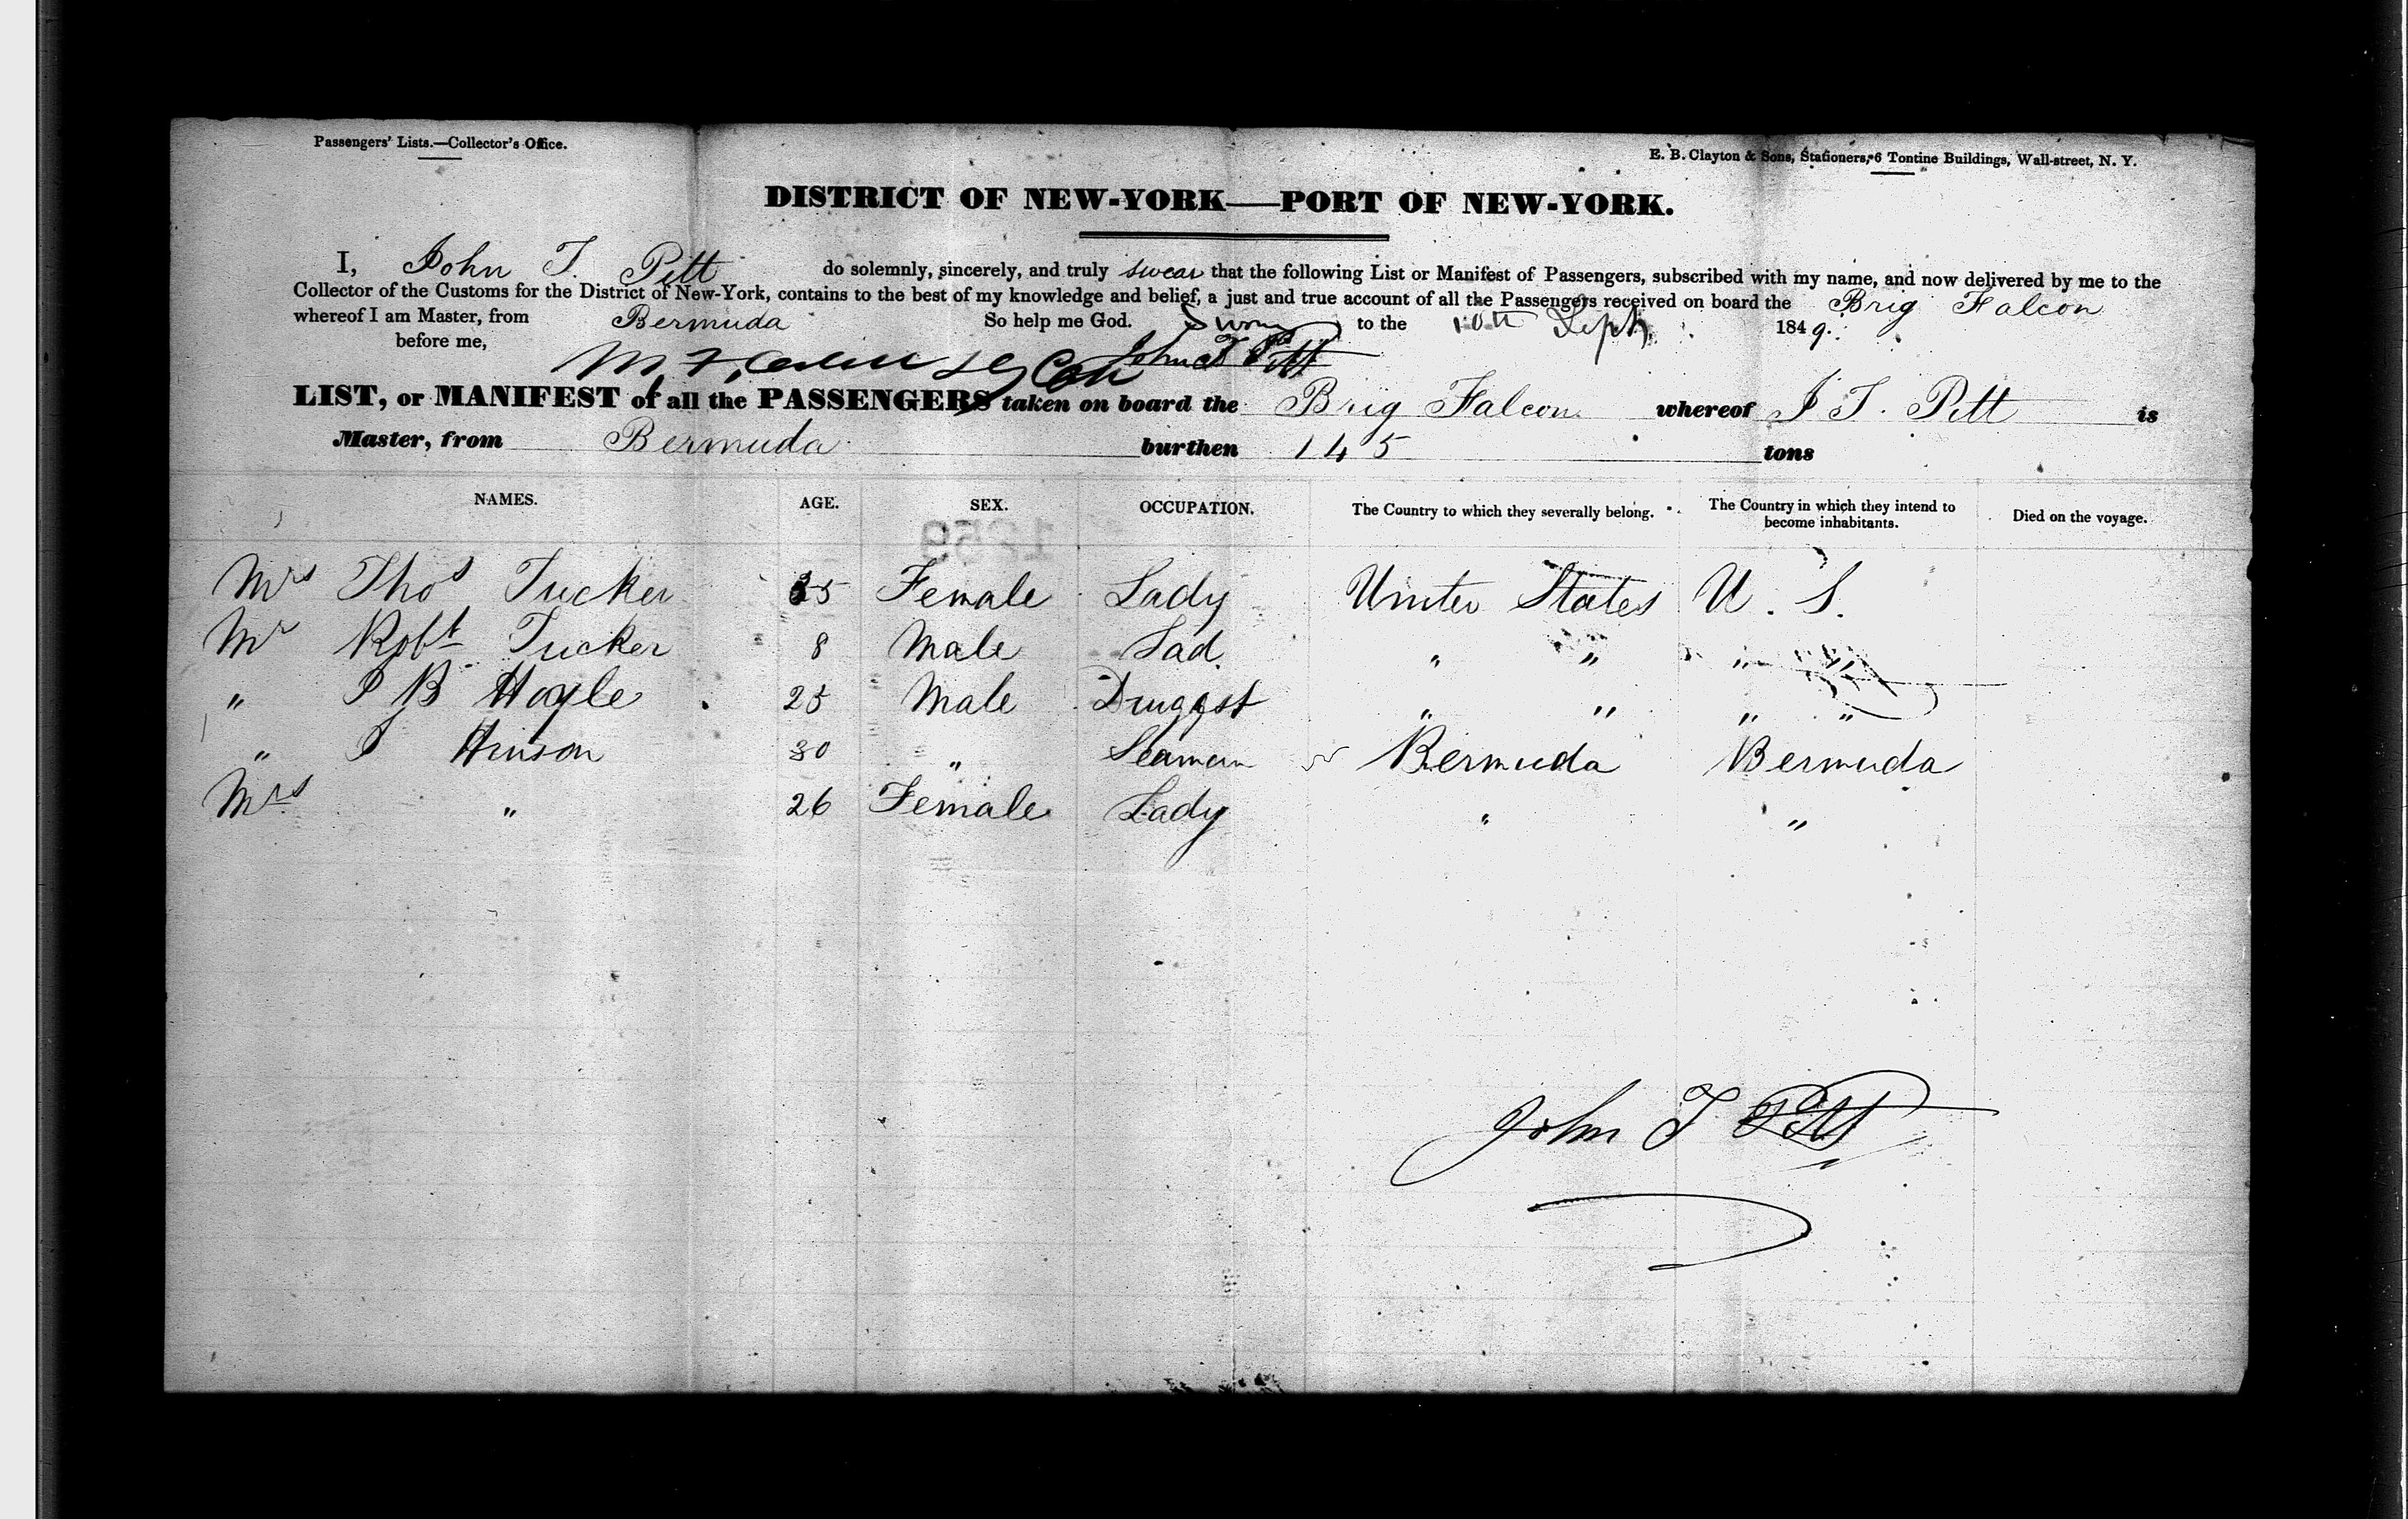 Passengers' Lists.—Collector's Office.
E. B. Clayton & Sons, Stationers, 6 Tontine Buildings, Wall-street, N. Y.
DISTRICT OF NEW-YORK—PORT OF NEW-YORK.
I, John T. Pitt do solemnly, sincerely, and truly swear that the following List or Manifest of Passengers, subscribed with my name, and now delivered by me to the
Collector of the Customs for the District of New-York, contains to the best of my knowledge and belief, a just and true account of all the Passengers received on board the Brig Falcon
whereof I am Master, from Bermuda So help me God. Sworn to the 10th Sept. 1849.
before me, John T Pitt
LIST, or MANIFEST of all the PASSENGERS taken on board the Brig Falcon whereof J T. Pitt is
Master, from Bermuda burthen 145 tons
NAMES. AGE. SEX. OCCUPATION. The Country to which they severally belong. The Country in which they intend to become inhabitants. Died on the voyage.
1259
Mrs Thos Tucker 35 Female Lady United States U. S.
Mr Robt Tucker 8 Male Lad " " " "
" J B Hoyle 25 Male Druggist " " " "
" J Hinson 30 " Seaman Bermuda Bermuda
Mrs " 26 Female Lady " "
John T Pitt